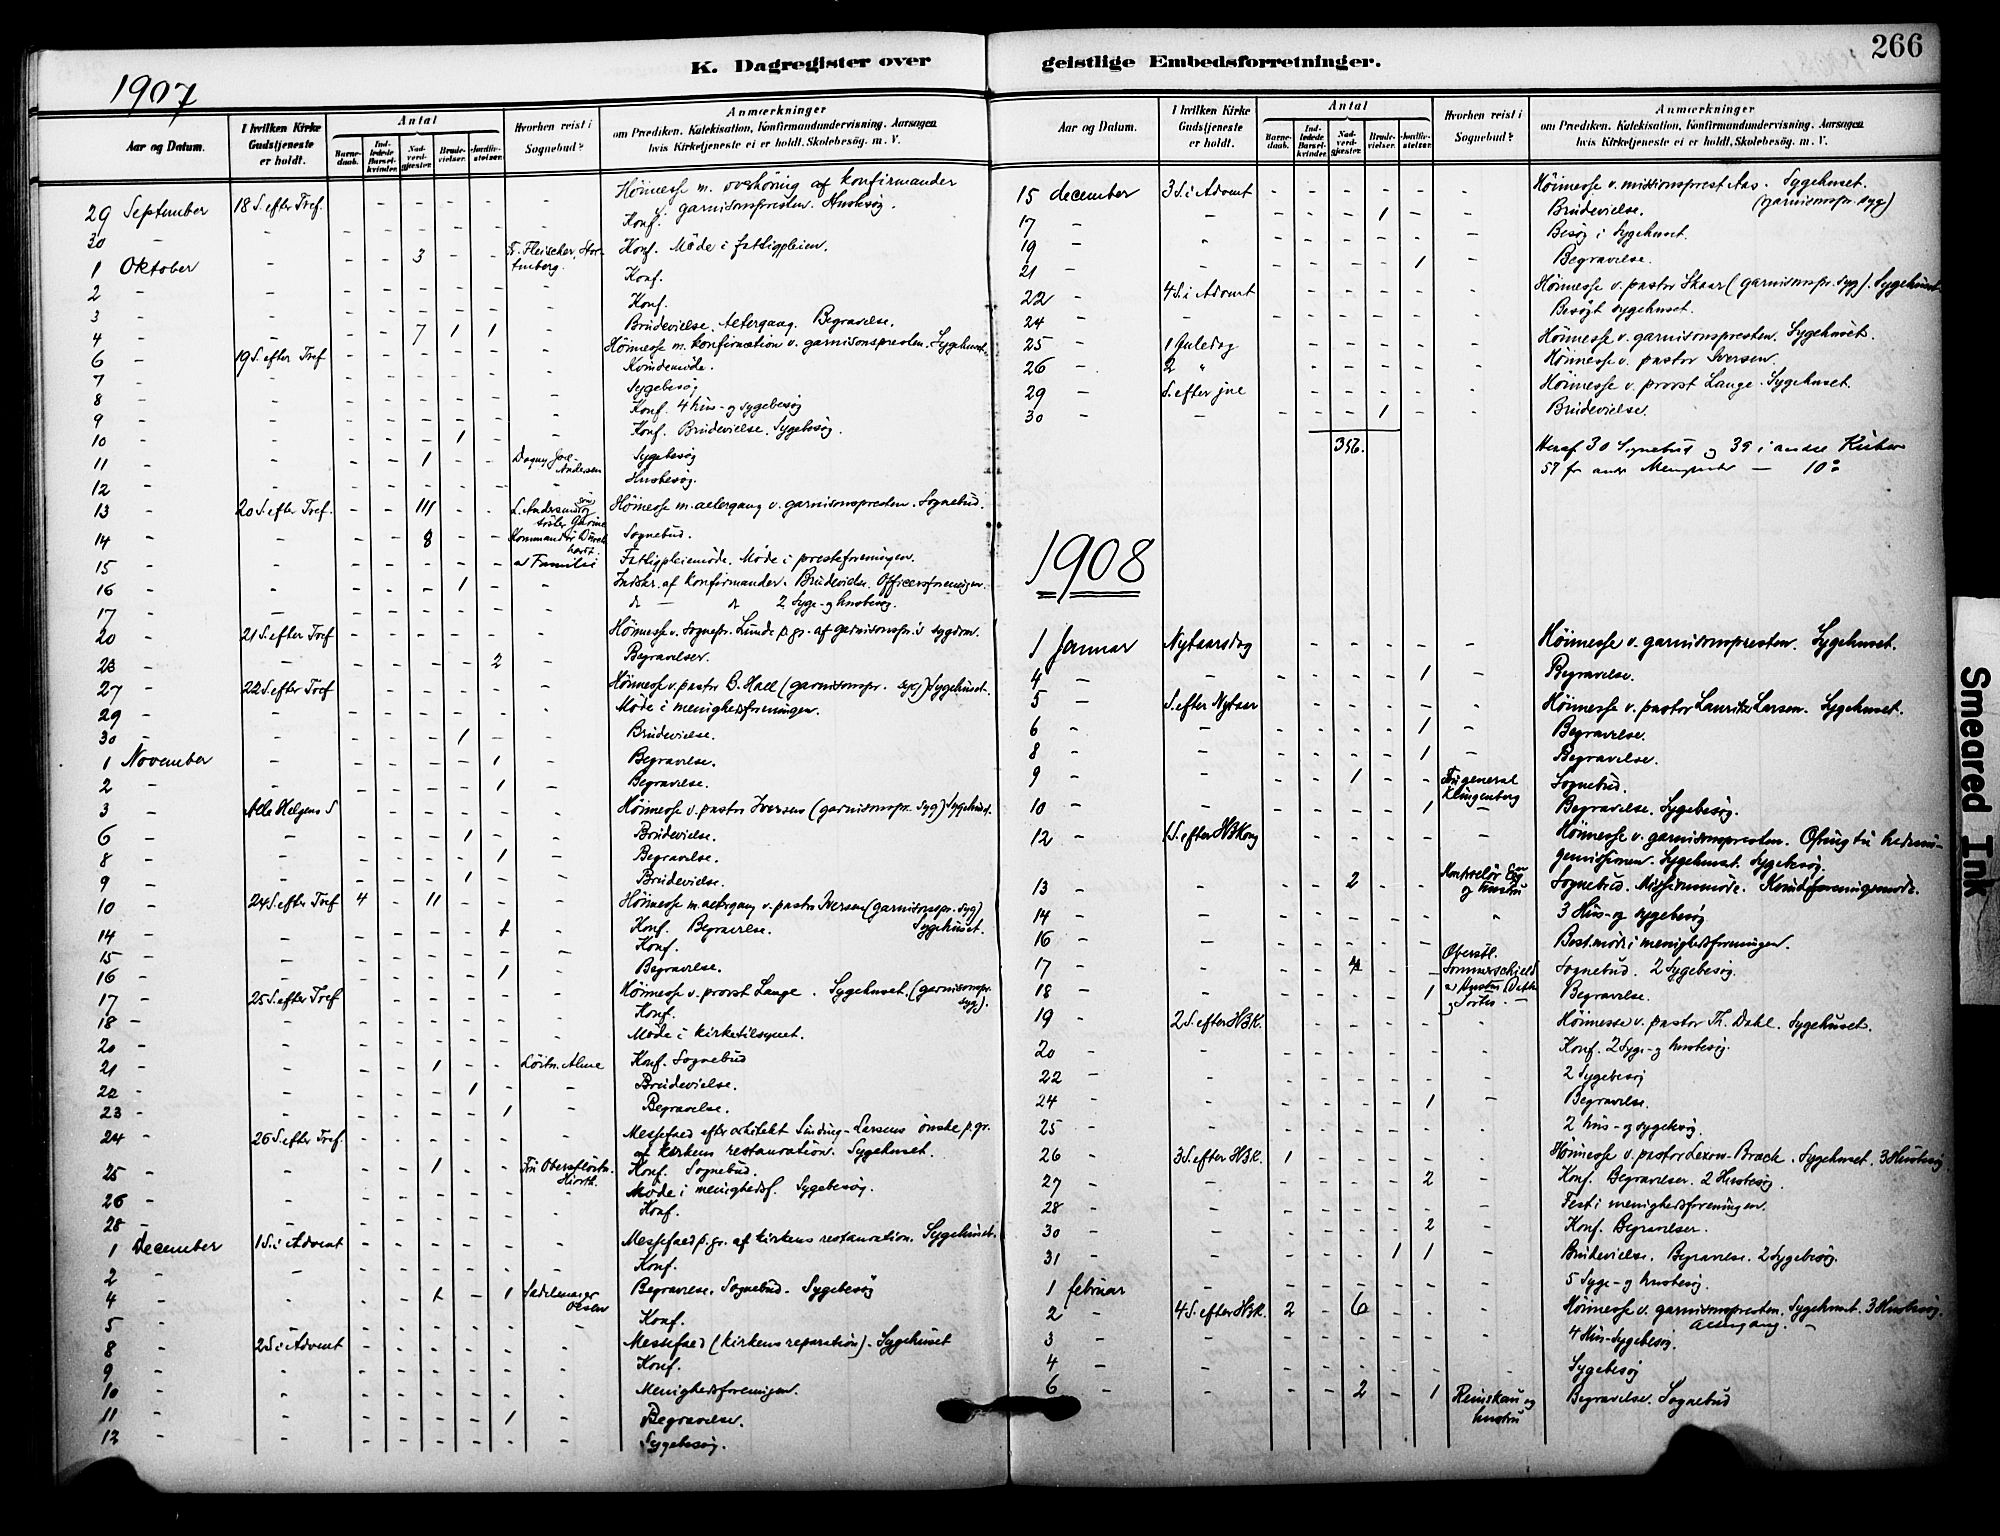 K. Dagregister over geistlige Embedsforretninger.
266
1907
Aar og Datum.
I hvilken Kirke Gudstjeneste er holdt.
Antal
Barne-daab.
Ind-ledede Barsel-kvinder.
Nad-verd-gjæster.
Brude-vielser.
Jordfæ-stelser.
Hvorhen reist i Sognebud?
Anmærkninger
om Prædiken, Katekisation, Konfirmandundervisning, Aarsagen
hvis Kirketjeneste ei er holdt, Skolebesög m. V.
29 September 18 S. efter Tref. - - - - - - Høimesse m. overhøring af konfirmander
v. garnisonspresten. Husbesøg.
30 - - - - - - - - Konf.
1 Oktober - - - 3 - - Fr. Fleischer, Konf. Møde i fattigpleien.
2 - - - - - - - - Konf.
3 - - - - - - - - Konf.
4 - - - - 7 1 1 - Brudevielse. Altergang. Begravelse.
6 - 19 S. efter Tref - - - - - - Høimesse m. konfirmation v. garnisonspresten. Sygehuset.
7 - - - - - - - - Kvindemøde.
8 - - - - - - - - Sygebesøg
9 - - - - - - - - Konf. 4 hus- og sygebesøg
10 - - - - - 1 - - Konf. Brudevielse. Sygebesøg.
11 - - - - 1 - - Dagny Andersen Sygebesøg
12 - - - - - - - - Husbesøg.
13 - 20 S. efter Tref. - - 111 - - Høimesse m. altergang v. garnisonspresten. Sognebud.
14 - - - - 8 - - Kommandør Sognebud.
15 - - - - - - - Familie Fattigpleiemøde. Møde i presteforeningen.
16 - - - - - 1 - - Indskr. af konfirmander. Brudevielse. Officersforeningen.
17 - - - - - - - - 2 Syge- og husbesøg.
20 - 21 S. efter Tref - - - - - - Høimesse v. sognepr. Lunde p. gr. af garnisonspr.s sygdom.
23 - - - - - - 2 - Begravelser.
27 - 22 S. efter Tref - - - - - - Høimesse v. pastor B. Hall (garnisonspr. syg) Sygehuset.
29 - - - - - - - - Møde i menighedsforeningen.
30 - - - - - 1 - - Brudevielse.
1 November - - - - - 1 - Begravelse.
2 - - - - - - 1 - Begravelse.
3 - Alle Helgens S - - - - - - Høimesse v. pastor Iversen (garnisonspr. syg) Sygehuset.
6 - - - - - 1 - - Brudevielse.
8 - - - - - - 1 - Begravelse.
9 - - - - - 1 - - Brudevielse.
10 - 24 S. efter Tref 4 - 11 - - - Høimesse m. altergang v. pastor Iversen (garnisonspr. syg)
Sygehuset.
14 - - - - - - 1 - Konf. Begravelse.
15 - - - - - - - - Konf.
16 - - - - - - 1 - Begravelse.
17 - 25 S. efter Tref - - - - - - Høimesse v. provst Lange. Sygehuset. (garnisonspr. syg).
18 - - - - - - - - Konf.
20 - - - - - - - - Møde i kirketilsynet.
21 - - - - 1 - - Løitn. Konf. Sognebud
22 - - - - - 1 - - Brudevielse.
23 - - - - - - 1 - Begravelse.
24 - 26 S. efter Tref. - - - - - - Messefald efter arkitekt Sinding-Larsens ønske p. gr.
af kirkens restauration. Sygehuset.
25 - - - - 1 - - Fru Oberstløitn. Hiorth. Konf. Sognebud.
26 - - - - - - - - Møde i menighedsf. Sygebesøg.
28 - - - - - - - - Konf.
1 December 1 S. i Advent - - - - - - Messefald p. gr. af kirkens restauration. Sygehuset.
2 - - - - - - - - Konf.
4 - - - - 1 - 1 Sadelmager Olsen Begravelse. Sognebud. Sygebesøg
5 - - - - - - - - Konf.
8 - 2 S. i Advent - - - - - - Messefald (kirkens reparation). Sygehuset
9 - - - - - - - - Konf.
10 - - - - - - - - Menighedsforeningen.
11 - - - - - - 1 - Begravelse.
12 - - - - - - - - Sygebesøg.
Aar og Datum.
I hvilken Kirke Gudstjeneste er holdt.
Antal
Barne-daab.
Ind-ledede Barsel-kvinder.
Nad-verd-gjæster.
Brude-vielser.
Jordfæ-stelser.
Hvorhen reist i Sognebud?
Anmærkninger
om Prædiken, Katekisation, Konfirmandundervisning, Aarsagen
hvis Kirketjeneste ei er holdt, Skolebesög m. V.
15 december 3 S. i Advent - - - - - - Høimesse v. missionsprest Aas. Sygehuset.
(garnisonspr. syg)
17 - - - - - 1 - - Brudevielse.
19 - - - - - - - - Besøg i Sygehuset.
21 - - - - - - 1 - Begravelse.
22 - 4 S. i Advent - - - - - - Høimesse v. pastor Skaar (garnisonspr. syg). Sygehuset
24 - - - - - - - - Besøgt sygehuset.
25 - 1 Juledag - - - - - - Høimesse v. garnisonspresten. Sygehuset.
26 - 2 " - - - - - - Høimesse v. pastor Iversen.
29 - S. efter jul - - - - - - Høimesse v. provst Lange. Sygehuset.
30 - - - - - 1 - - Brudevielse.
356. Heraf 30 Sognebud og 39 i andre Kirker
57 fr andre Menigheder
1908
1 Januar Nytaarsdag - - - - - - Høimesse v. garnisonspresten. Sygehuset.
4 - - - - - - 1 - Begravelse.
5 - S. efter Nytaar - - - - - - Høimesse v. pastor Laurits Larsen. Sygehuset.
6 - - - - - - 1 - Begravelse.
8 - - - - - - 1 - Begravelse.
9 - - - - 1 - - Fru general Klingenberg Sognebud.
10 - - - - - - 1 - Begravelse. Sygebesøg.
12 - 1 S. efter H3Kong - - - - - - Høimesse v. garnisonspresten. Ofring til hedningemissionen. Sygehuset. Sygebesøg.
13 - - - - 2 - - Kontrolør og hustru Sognebud. Missionsmøde. Kvindeforeningsmøde.
14 - - - - - - - " 3 Hus- og sygebesøg
16 - - - - - - - - Best. møde i menighedsforeningen.
17 - - - - 4 - - Oberstl. Sommerschield Sognebud. 2 Sygebesøg.
18 - - - - - - 1 - Begravelse.
19 - 2 S. efter H3K. - - - - - - Høimesse v. pastor Th. Dahl. Sygehuset.
20 - - - - - - - - Konf. 2 Syge- og husbesøg.
22 - - - - - - - - 2 Sygebesøg
24 - - - - - - 1 - Begravelse.
25 - - - - - - - - 2 hus- og sygebesøg.
26 - 3 S. efter H3K. 1 - - - - - Høimesse v. pastor Lexow-Bræck. Sygehuset. 3 Husbesøg.
27 - - - - - - 2 - Konf. Begravelser. 2 Husbesøg.
28 - - - - - - - - Fest i menighedsforeningen.
30 - - - - - - 2 - Konf. Begravelser.
31 - - - - - 1 1 - Brudevielse. Begravelse. 2 Sygebesøg.
1 februar - - - - - - - 5 Syge- og husbesøg.
2 - 4 S. efter H3K. 2 - 6 - - - Høimesse v. garnisonspresten. Sygehuset. 3 Husbesøg.
Altergang.
3 - - - - - - - - 4 Hus-Sygebesøg.
4 - - - - - - - - Sygebesøg
6 - - - - 2 - 1 Reinskau og hustru Begravelse. Sognebud
Smeared Ink